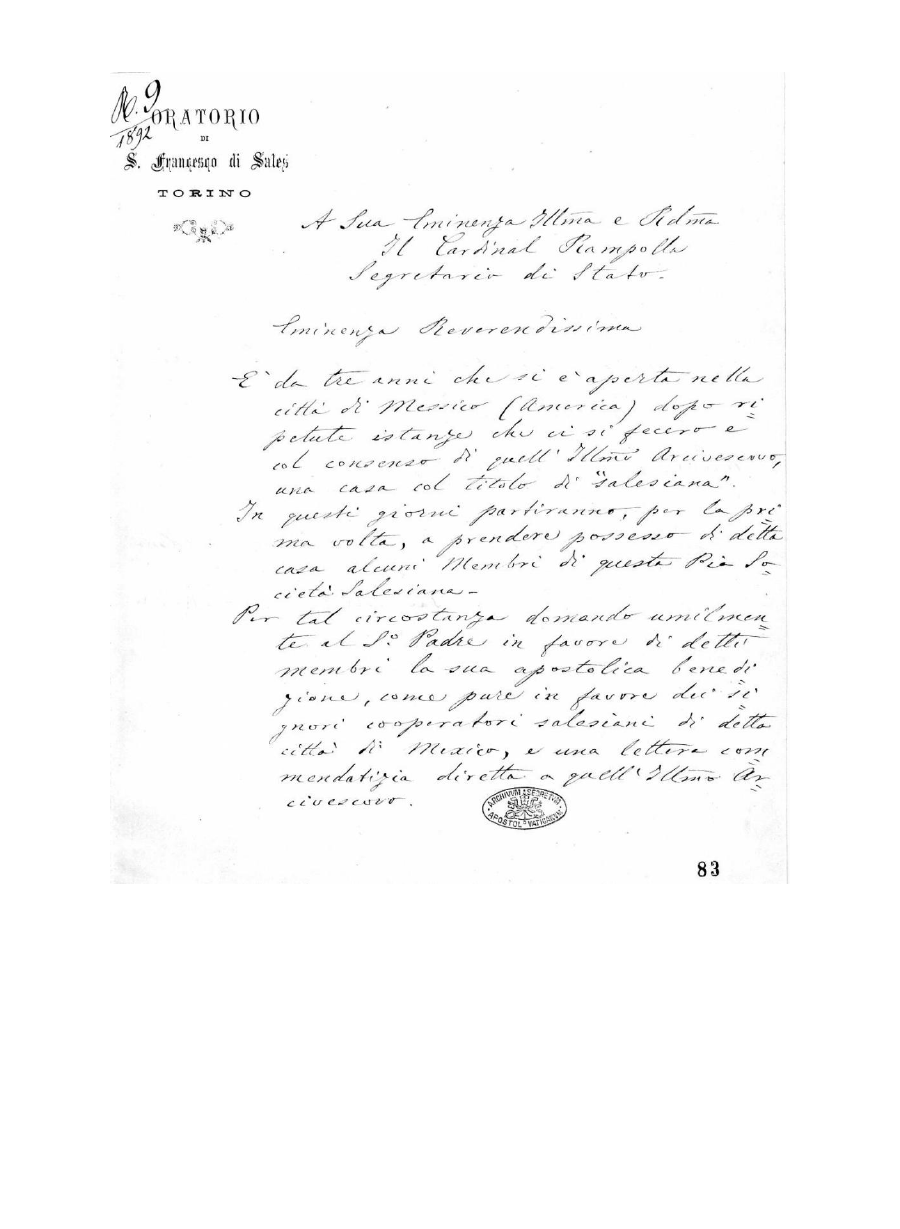 N. 9
1892
ORATORIO
DI
S. Francesco di Sales
TORINO
A Sua Eminenza Illma e Rdma
Il Cardinal Rampolla
Segretario di Stato.
Eminenza Reverendissima
E' da tre anni che si è aperta nella
città di Messico (America) dopo ri=
petute istanze che ci si fecero e
col consenso di quell' Illmo Arcivescovo,
una casa col titolo di "salesiana".
In questi giorni partiranno, per la pri=
ma volta, a prendere possesso di detta
casa alcuni Membri di questa Pia So=
cietà Salesiana-
Per tal circostanza domando umilmen=
te al So Padre in favore di detti
membri la sua apostolica benedi=
zione, come pure in favore dei si=
gnori cooperatori salesiani di detta
città di Mexico, e una lettera com=
mendatizia diretta a quell' Illmo Ar=
civescovo.
ARCHIVUM SECRETUM
APOSTOL. VATICANUM
83